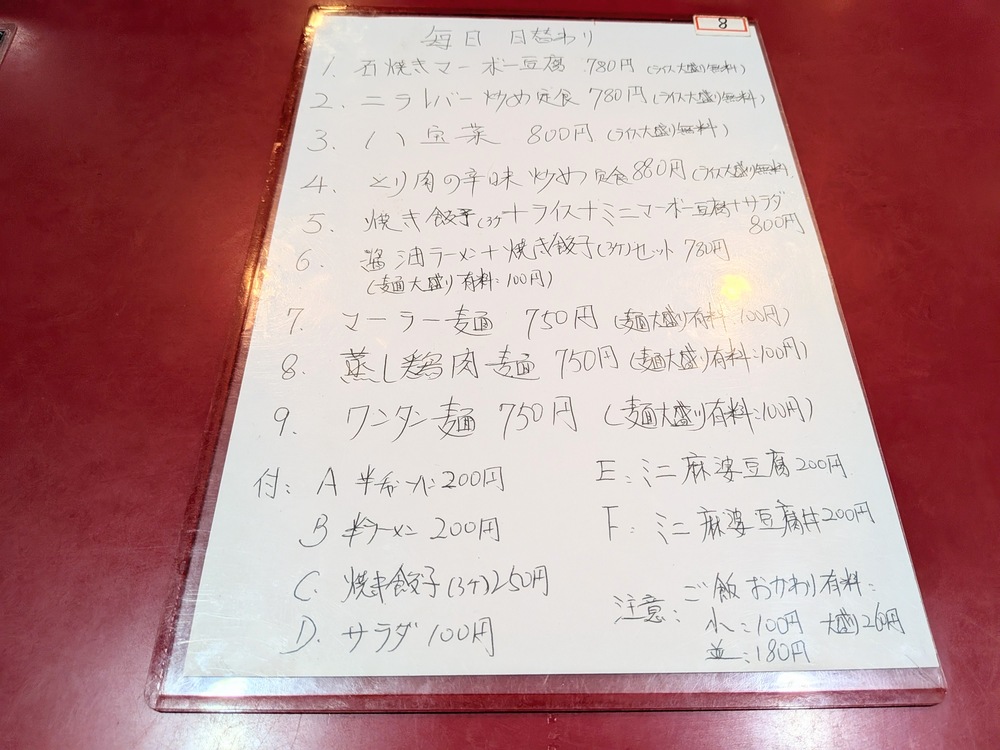 8
毎日 日替わり
1. 石焼きマーボー豆腐 780円 (ライス大盛り無料)
2. ニラレバー炒め定食 780円 (ライス大盛り無料)
3. 八宝菜 800円 (ライス大盛り無料)
4. とり肉の辛味炒め定食 880円 (ライス大盛り無料)
5. 焼き餃子(3ヶ)+ライス+ミニマーボー豆腐+サラダ
800円
6. 醤油ラーメン+焼き餃子(3ケ)セット 780円
(麺大盛り有料:100円)
7. マーラー麺 750円 (麺大盛り有料:100円)
8. 蒸し鶏肉麺 750円 (麺大盛り有料:100円)
9. ワンタン麺 750円 (麺大盛り有料:100円)
付: A 半チャーハン 200円
B 半ラーメン 200円
C. 焼き餃子(3ケ)250円
D. サラダ 100円
E: ミニ麻婆豆腐 200円
F: ミニ麻婆豆腐丼 200円
注意: ご飯おかわり有料:
小:100円 大盛り260円
並:180円